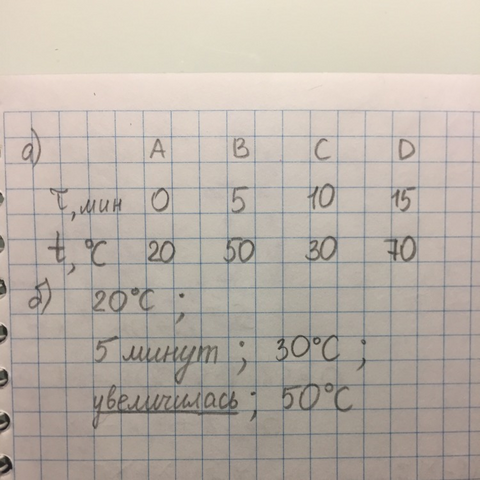 а) A B C D
τ, мин 0 5 10 15
t, °C 20 50 30 70
б) 20°C ;
5 минут ; 30°C ;
увеличилась ; 50°C